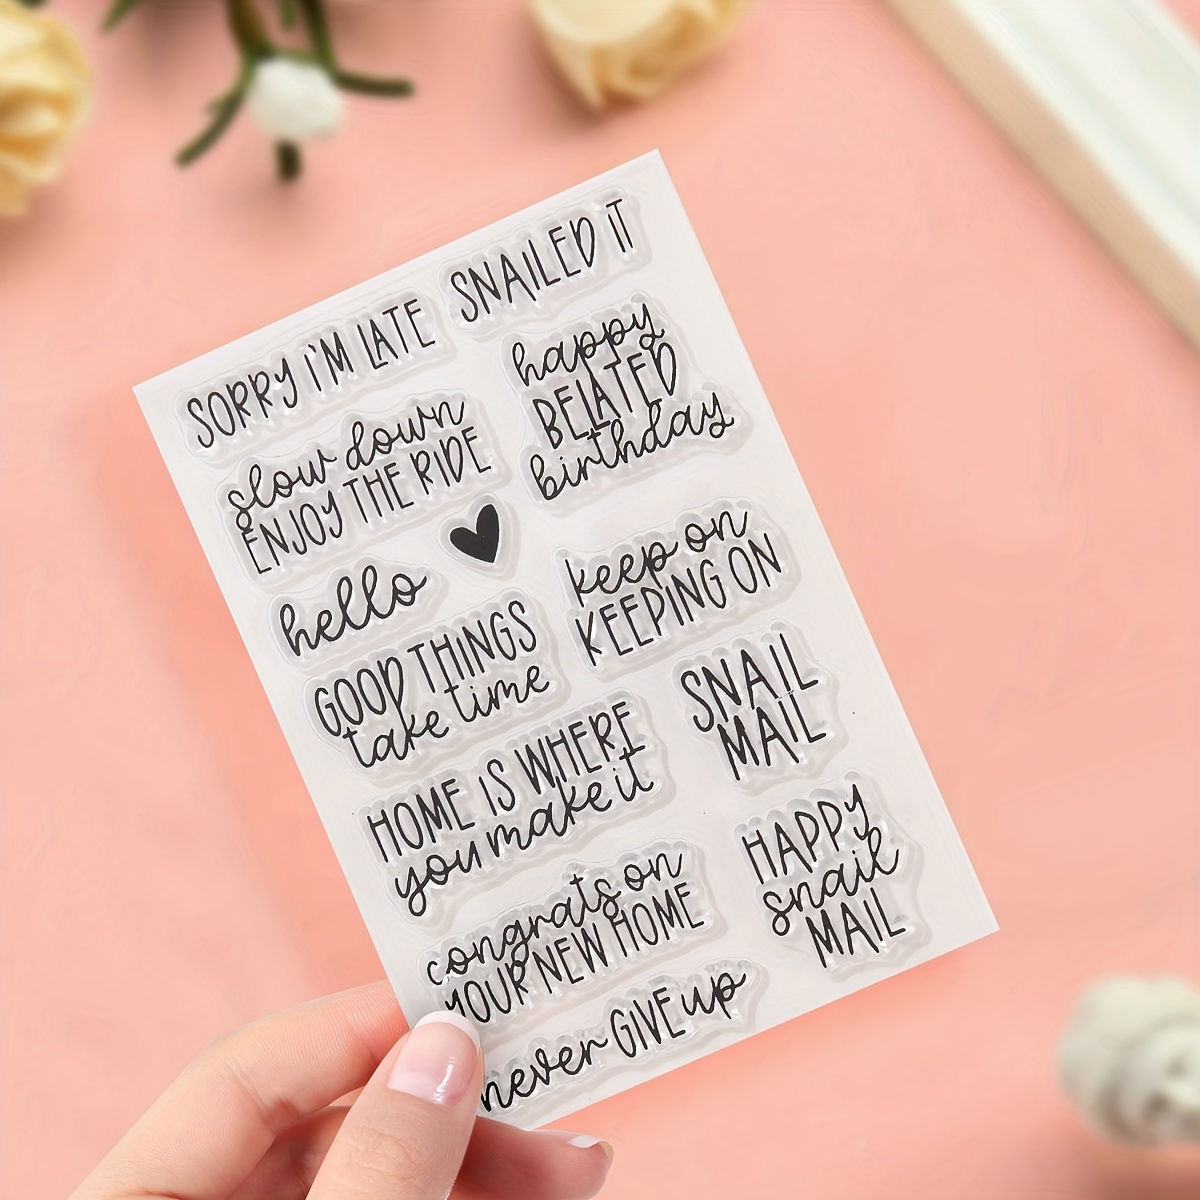 SORRY I'M LATE
SNAILED IT
slow down
ENJOY THE RIDE
happy
BELATED
birthday
hello
keep on
KEEPING ON
GOOD THINGS
take time
SNAIL
MAIL
HOME IS WHERE
you make it
HAPPY
snail
MAIL
congrats on
YOUR NEW HOME
never GIVE up